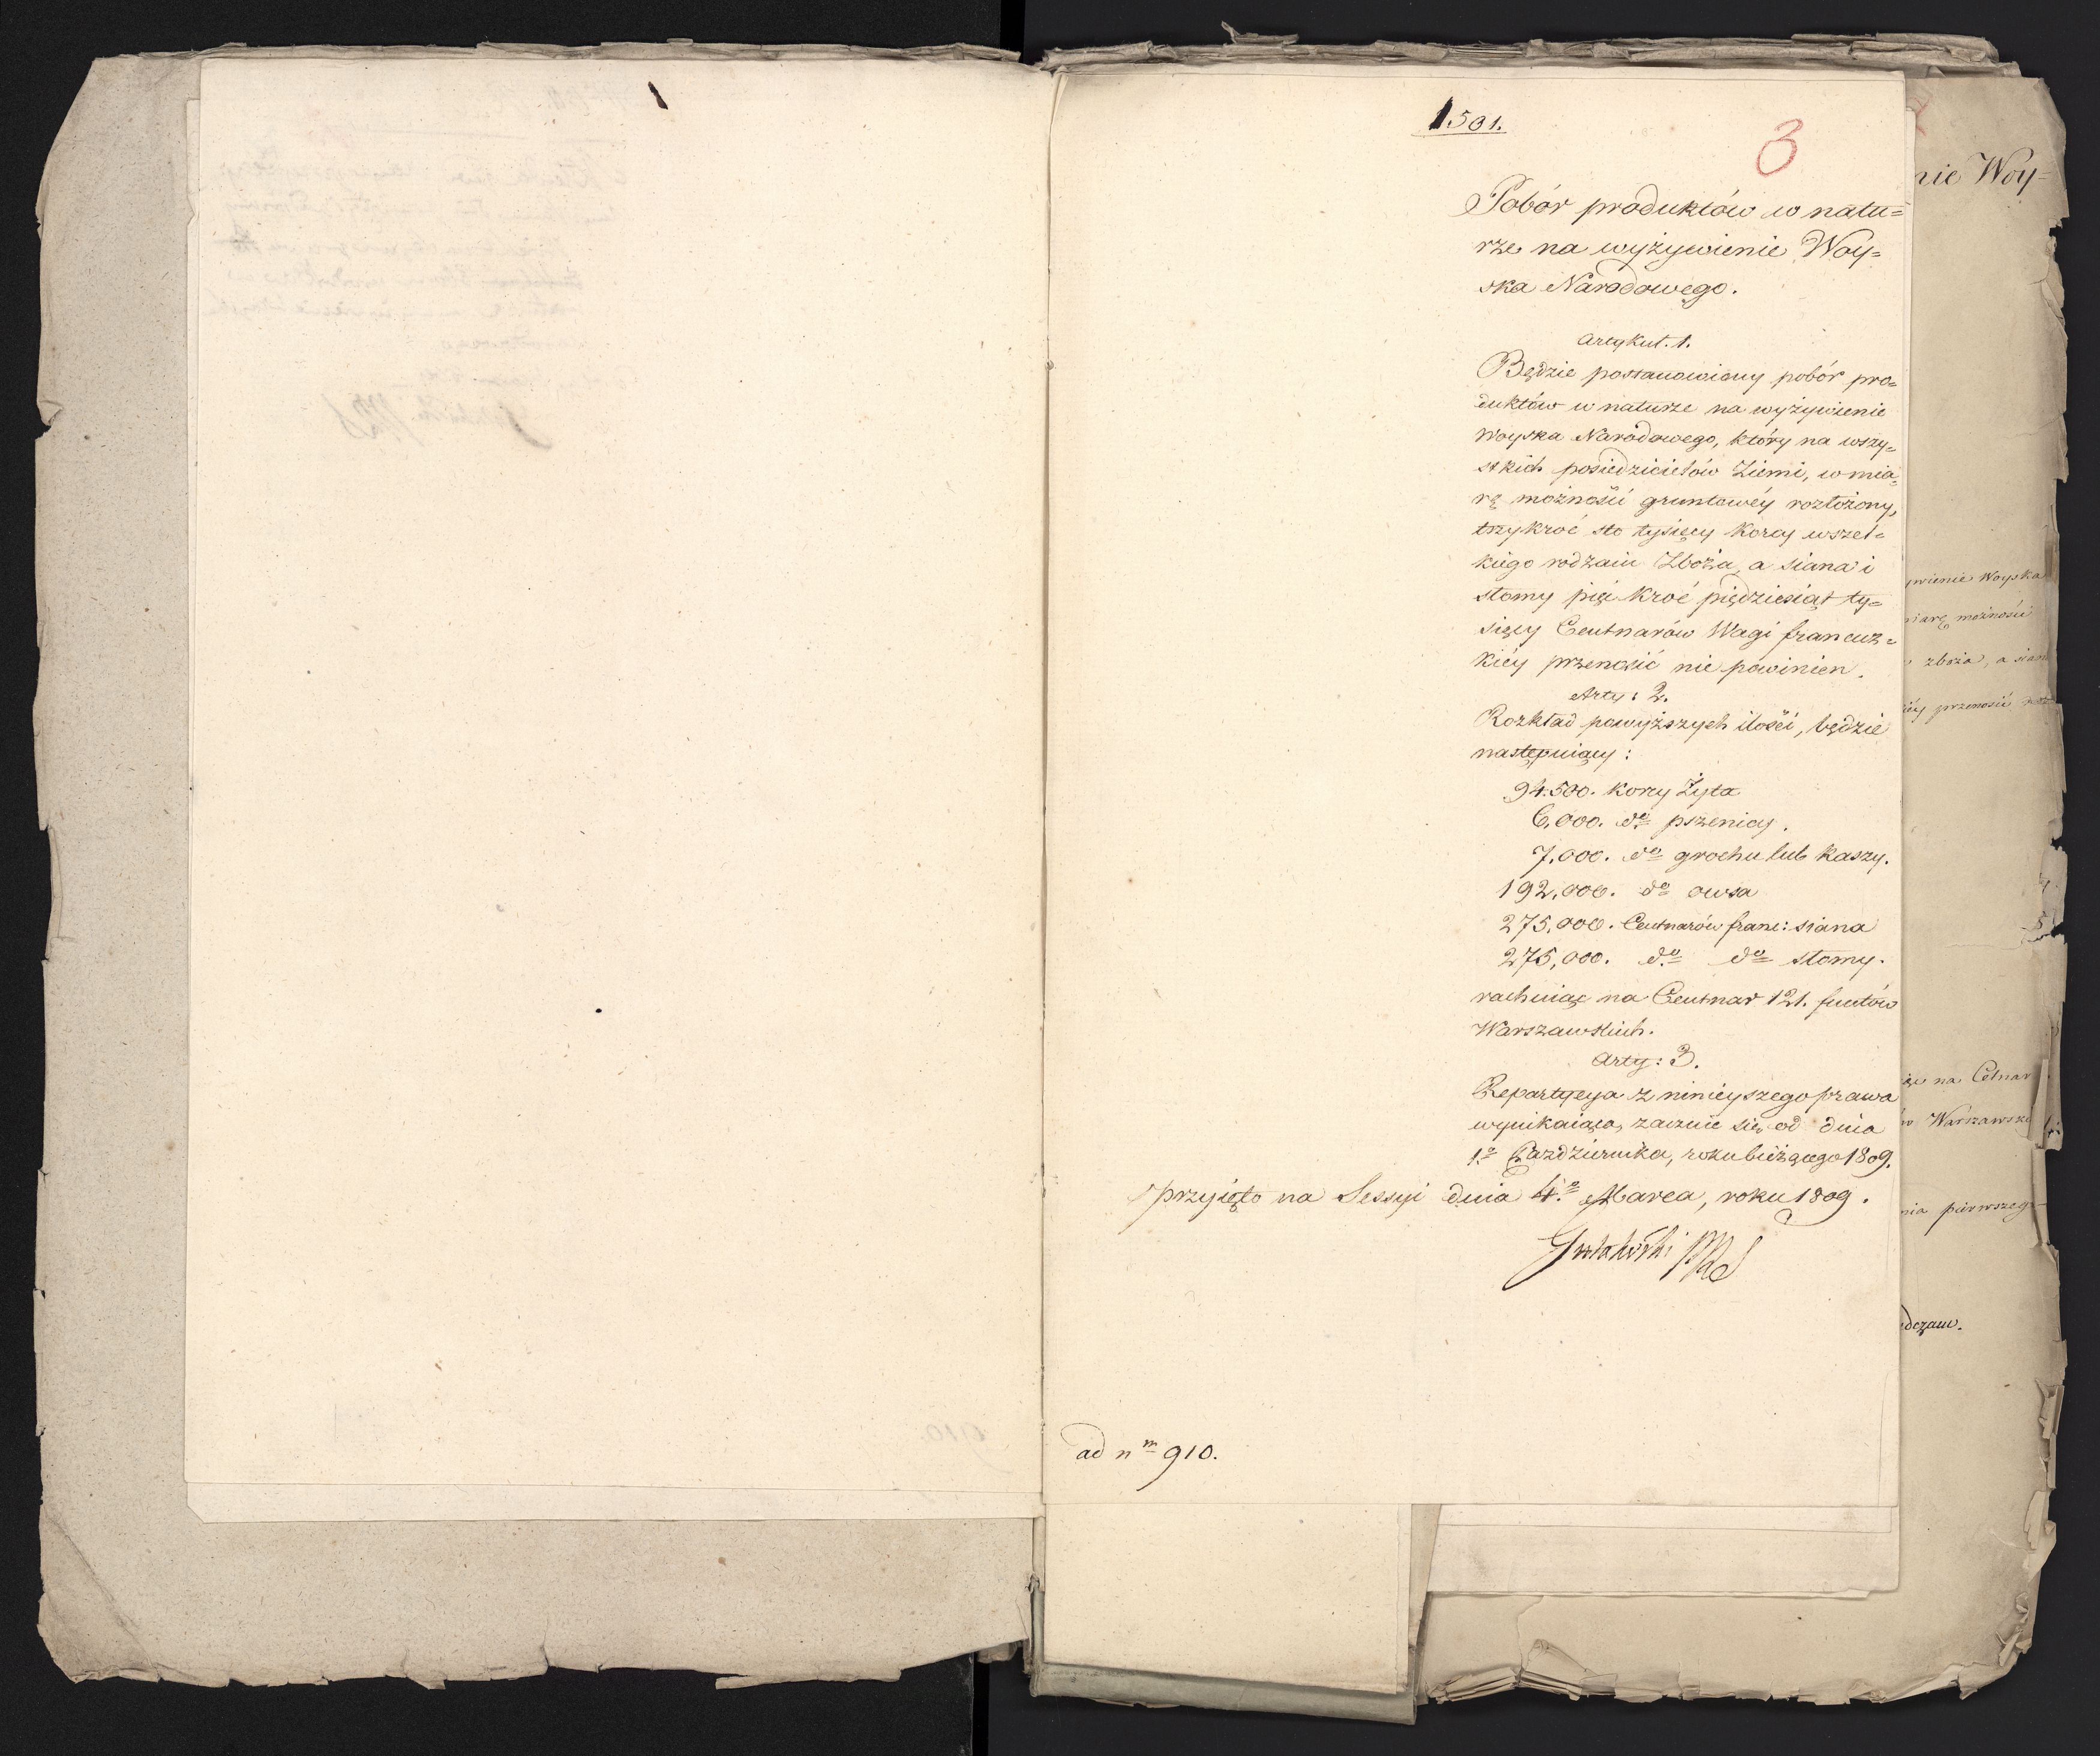 1.501.
3
Pobór produktów w natu=
rze na wyżywienie Woy=
ska Narodowego.
Artykuł. 1.
Będzie postanowiony pobór pro=
duktów w naturze na wyżywienie
Woyska Narodowego, który na wszy=
stkich posiedzicielów Ziemi, w mia=
rę możności gruntowéy rozłożony,
trzykroć sto tysięcy korcy wszel=
kiego rodzaiu Zboża, a siana i
słomy pięć kroć piędziesiąt ty=
sięcy Centnarów Wagi francuz=
kiéy przenosić nie powinien.
Arty: 2.
Rozkład powyższych ilości, będzie
następuiący:
94.500. korcy Żyta
6,000. do pszenicy.
7,000. do grochu lub kaszy.
192,000. do owsa
275,000. Centnarów franc: siana
275,000. do do słomy.
rachuiąc na Centnar 121. funtów
Warszawskich.
Arty: 3.
Repartycya z ninieyszego prawa
wynikaiąca, zacznie się od dnia
1o Października, roku bieżącego 1809.
przyięto na Sessyi dnia 4o Marca, roku 1809.
ad nm 910.
nie Woy=
ywienie Woyska
miarę możności
zboża, a siana
iéy przenosić
na Cetnar
Warszawski
nia pierwszego
dczam.